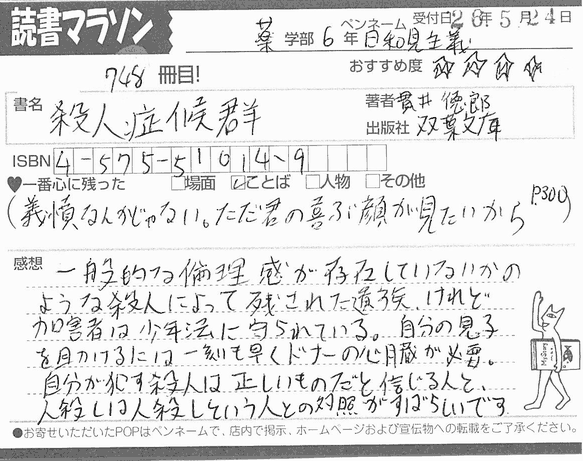 読書マラソン
薬 学部 6 年 ペンネーム 日和見主義 受付日 26年5月24日
748 冊目! おすすめ度 ☆☆☆☆
書名 殺人症候群
著者 貫井徳郎
出版社 双葉文庫
ISBN 4-575-51014-9
♥一番心に残った □場面 ☑ことば □人物 □その他
(義憤なんかじゃない。ただ君の喜ぶ顔が見たいから P300)
感想 一般的な倫理感が存在していないかの
ような殺人によって残された遺族、けれど
加害者は少年法に守られている。自分の息子
を助けるには一刻も早くドナーの心臓が必要。
自分が犯す殺人は正しいものだと信じる人と、
人殺しは人殺しという人との対照がすばらしいです
●お寄せいただいたPOPはペンネームで、店内で掲示、ホームページおよび宣伝物への転載をご了承ください。